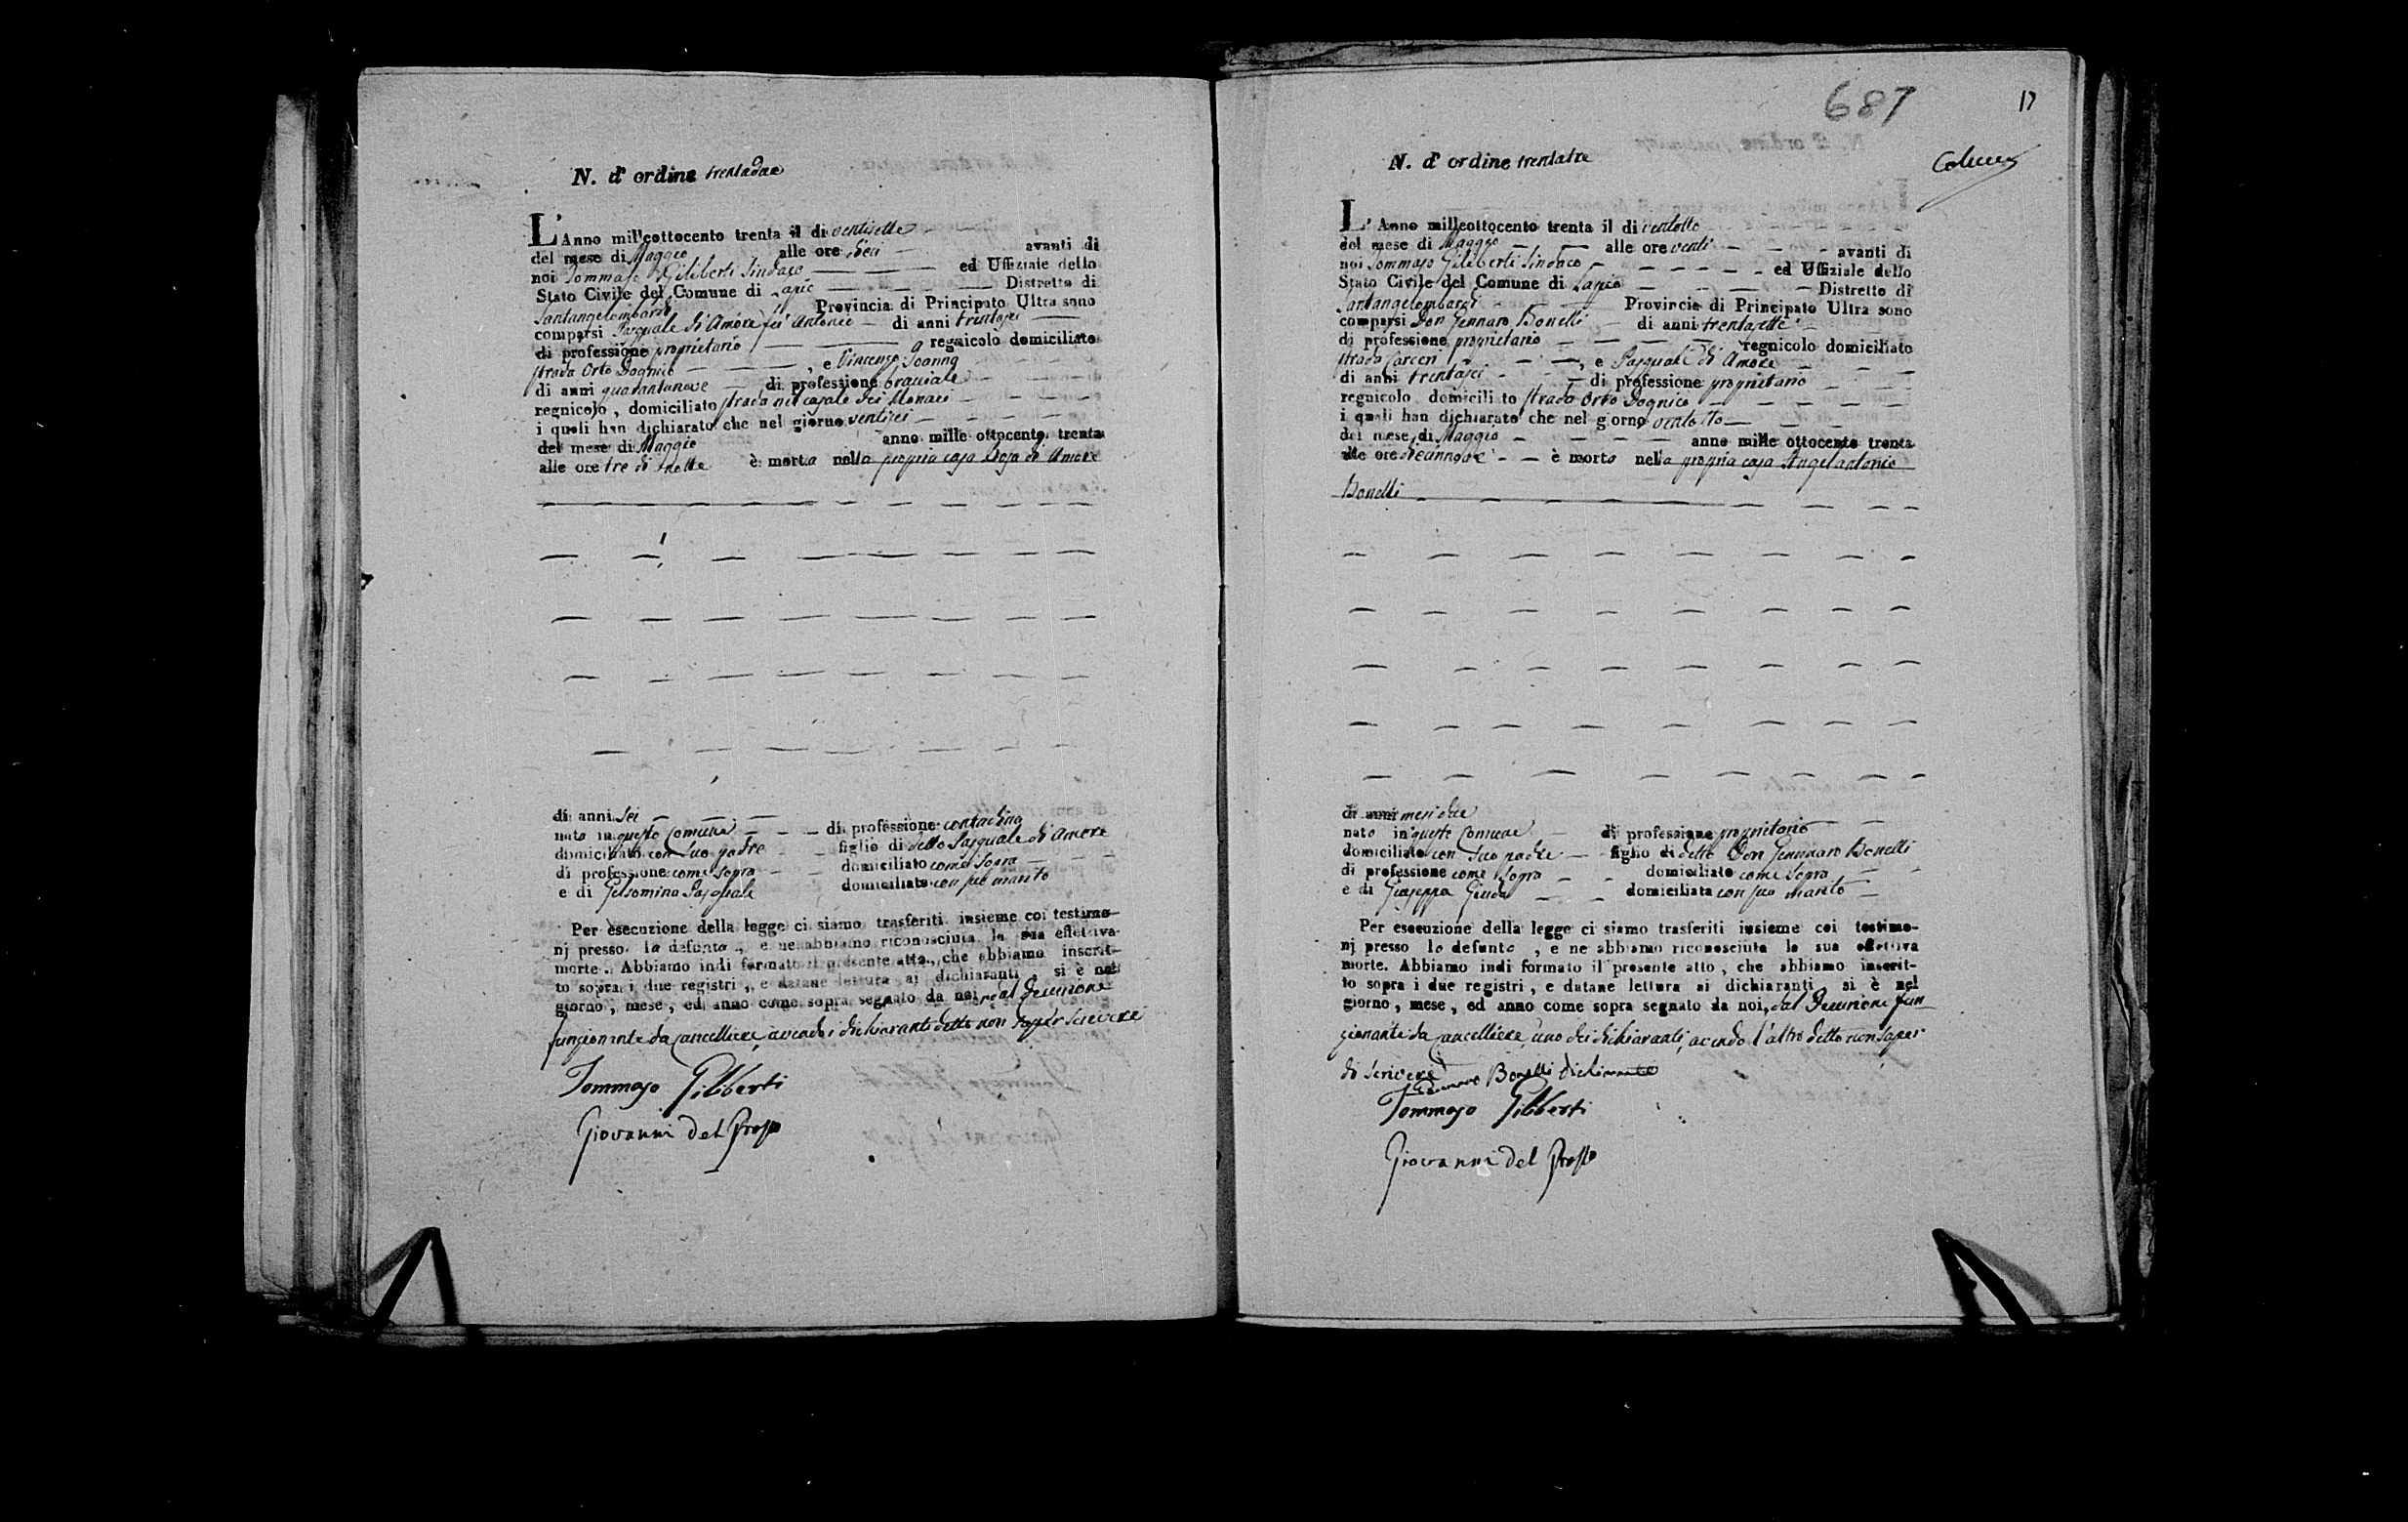 N. d' ordine trentadue
L'Anno mill'eottocento trenta il di ventisette
del mese di Maggio alle ore dieci avanti di
noi Tommaso Giliberti Sindaco ed Uffiziale dello
Stato Civile del Comune di Lapio Distretto di
Santangelombardi Provincia di Principato Ultra sono
comparsi Pasquale di Amore fu Antonio di anni trentasei
di professione proprietario regnicolo domiciliato
strada Orto Dognico, e Vincenzo Ioanna
di anni quarantanove di professione bracciale
regnicolo, domiciliato strada nel casale dei Monaci
i quali han dichiarato che nel giorno ventisei
del mese di Maggio anno mille ottocento trenta
alle ore tre di notte è morta nella propria casa Rosa di Amore
di anni sei
nato in questo Comune di professione contadina
domiciliato con suo padre figlio di detto Pasquale di Amore
di professione come sopra domiciliato come sopra
e di Gelsomina Pasquale domiciliato con suo marito
Per esecuzione della legge ci siamo trasferiti insieme coi testimo-
nj presso la defunta, e ne abbiamo riconosciuta la sua effettiva
morte. Abbiamo indi formato il presente atto, che abbiamo inscrit-
to sopra i due registri, e datane lettura ai dichiaranti, si è nel
giorno, mese, ed anno come sopra segnato da noi, e dal Decurione
funzionante da Cancelliere, avendo i dichiaranti detto non saper scrivere
Tommaso Giliberti
Giovanni Del Grosso
687
17
N. d' ordine trentatre
L' Anno milleottocento trenta il di ventotto
del mese di Maggio alle ore venti avanti di
noi Tommaso Giliberti Sindaco ed Uffiziale dello
Stato Civile del Comune di Lapio Distretto di
Santangelombardi Provincia di Principato Ultra sono
comparsi Don Gennaro Bonelli di anni trentasette
di professione proprietario regnicolo domiciliato
strada Carceri, e Pasquale di Amore
di anni trentasei di professione proprietario
regnicolo domicili to strada Orto Dognico
i quali han dichiarato che nel giorno ventotto
del mese di Maggio anno mille ottocento trenta
alle ore diecinnove è morto nella propria casa Angelantonio
Bonelli
di anni mesi due
nato in questo Comune di professione proprietario
domiciliato con suo padre figlio di detto Don Gennaro Bonelli
di professione come sopra domiciliato come sopra
e di Giuseppa Giuda domiciliata con suo marito
Per esecuzione della legge ci siamo trasferiti insieme coi testimo-
nj presso lo defunto, e ne abbiamo riconosciuta la sua effettiva
morte. Abbiamo indi formato il presente atto, che abbiamo inscrit-
to sopra i due registri, e datane lettura ai dichiaranti si è nel
giorno, mese, ed anno come sopra segnato da noi, dal Decurione fun-
zionante da Cancelliere, uno dei dichiaranti, avendo l'altro detto non saper
di scrivere
Gennaro Bonelli dichiarante
Tommaso Giliberti
Giovanni Del Grosso